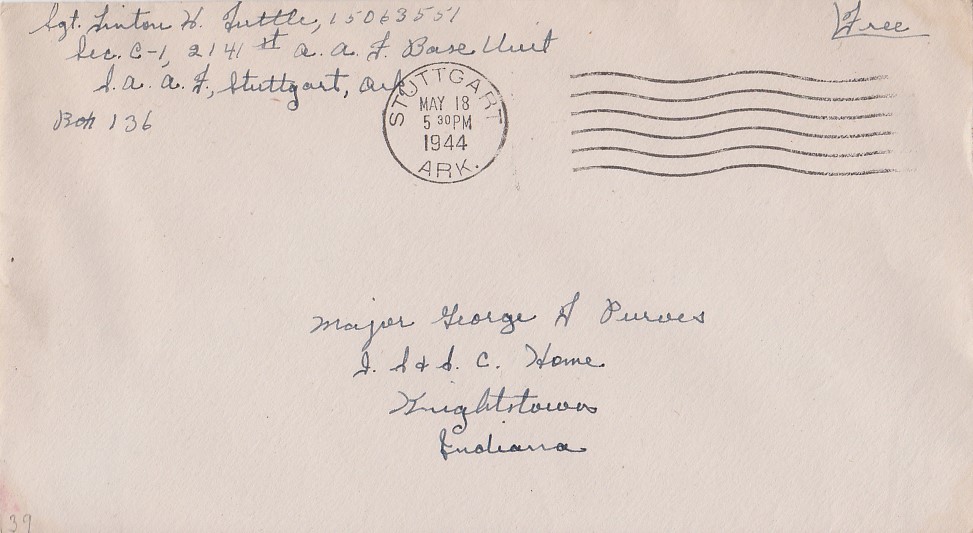 Sgt. Linton H. Tuttle, 15063551
Free
Sec. C-1, 2141 st A. A. F. Base Unit
S. A. A. F., Stuttgart, Ark
Box 136
STUTTGART
MAY 18
5 30 PM
1944
ARK.
Major George S Purves
I. S & S. C. Home
Knightstown
Indiana
39